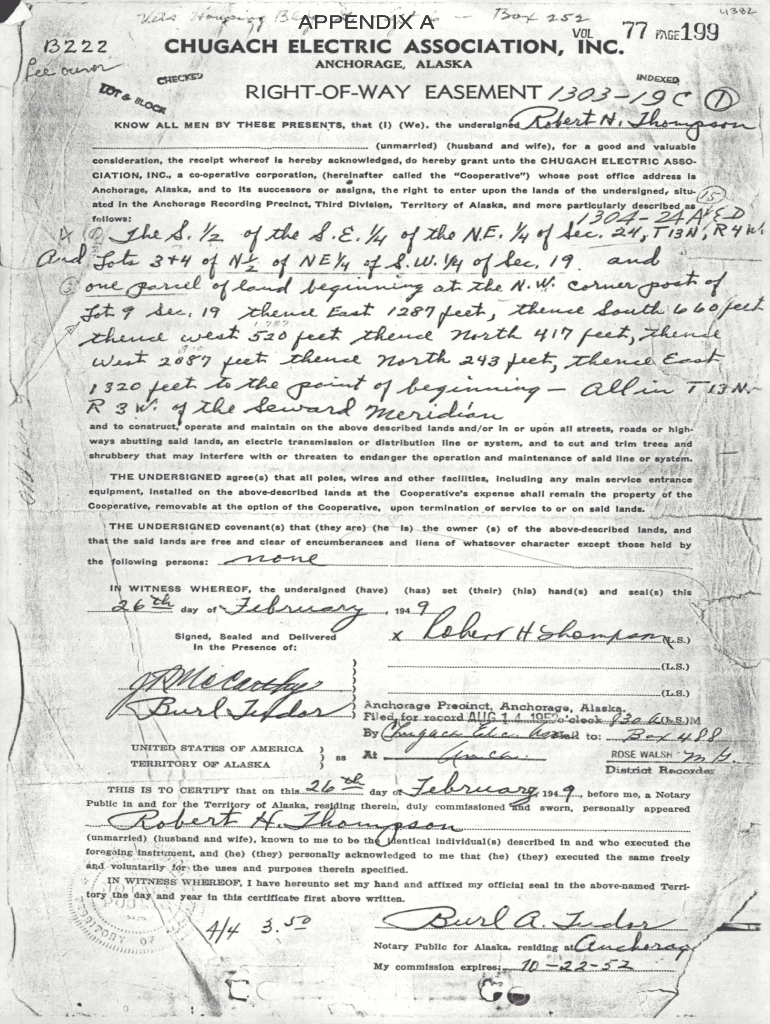 4382
Box 252
APPENDIX A
VOL 77 PAGE 199
B222
CHUGACH ELECTRIC ASSOCIATION, INC.
See owner
ANCHORAGE, ALASKA
CHECKED
INDEXED
LOT & BLOCK
RIGHT-OF-WAY EASEMENT 1303-19C 1
KNOW ALL MEN BY THESE PRESENTS, that (I) (We), the undersigned Robert H. Thompson
(unmarried) (husband and wife), for a good and valuable
consideration, the receipt whereof is hereby acknowledged, do hereby grant unto the CHUGACH ELECTRIC ASSO-
CIATION, INC., a co-operative corporation, (hereinafter called the "Cooperative") whose post office address is
Anchorage, Alaska, and to its successors or assigns, the right to enter upon the lands of the undersigned, situ-
ated in the Anchorage Recording Precinct, Third Division, Territory of Alaska, and more particularly described as
15
follows:
1304-24 A & D
The S. 1/2 of the S.E. 1/4 of the N.E. 1/4 of Sec. 24, T13N, R4W
And Lots 3+4 of N 1/2 of NE 1/4 of S.W. 1/4 of Sec. 19 and
one parcel of land beginning at the N.W. corner post of
Lot 9 Sec. 19 thence East 1287 feet, thence South 660 feet
thence west 520 feet thence North 417 feet, thence
West 2087 feet thence North 243 feet, thence East
1320 feet to the point of beginning - All in T 13 N.
R 3 W. of the Seward Meridian
and to construct, operate and maintain on the above described lands and/or in or upon all streets, roads or high-
ways abutting said lands, an electric transmission or distribution line or system, and to cut and trim trees and
shrubbery that may interfere with or threaten to endanger the operation and maintenance of said line or system.
THE UNDERSIGNED agree(s) that all poles, wires and other facilities, including any main service entrance
equipment, installed on the above-described lands at the Cooperative's expense shall remain the property of the
Cooperative, removable at the option of the Cooperative, upon termination of service to or on said lands.
THE UNDERSIGNED covenant(s) that (they are) (he is) the owner (s) of the above-described lands, and
that the said lands are free and clear of encumbrances and liens of whatsoever character except those held by
the following persons: none
IN WITNESS WHEREOF, the undersigned (have) (has) set (their) (his) hand(s) and seal(s) this
26th day of February, 1949
Signed, Sealed and Delivered
In the Presence of:
x Robert H Thompson (L.S.)
(L.S.)
(L.S.)
J R McCarthy
Burl Tudor
Anchorage Precinct, Anchorage, Alaska.
Filed for record AUG 14 1952 o'clock 830 A (L.S.) M
By Chugach Elec. Assn Mail to: Box 488
UNITED STATES OF AMERICA
TERRITORY OF ALASKA
ss
At Anch.
ROSE WALSH
District Recorder
THIS IS TO CERTIFY that on this 26th day of February, 1949, before me, a Notary
Public in and for the Territory of Alaska, residing therein, duly commissioned and sworn, personally appeared
Robert H. Thompson
(unmarried) (husband and wife), known to me to be the identical individual(s) described in and who executed the
foregoing instrument, and (he) (they) personally acknowledged to me that (he) (they) executed the same freely
and voluntarily for the uses and purposes therein specified.
IN WITNESS WHEREOF, I have hereunto set my hand and affixed my official seal in the above-named Terri-
tory the day and year in this certificate first above written.
4/4 3.50
Burl A. Tudor
Notary Public for Alaska, residing at Anchorage
My commission expires: 10-22-52